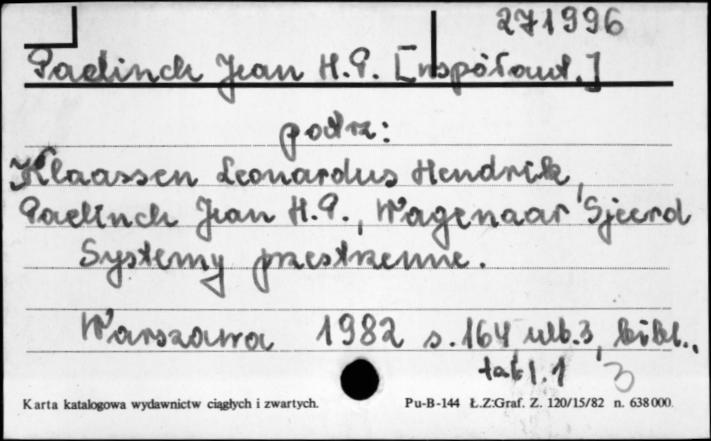 271996
Paelinck Jean H.P. [współaut.]
patrz:
Klaassen Leonardus Hendrik,
Paelinck Jean H.P., Wagenaar Sjeerd
Systemy przestrzenne.
Warszawa 1982 s.164 nlb.3, bibl.,
tabl. 1 3
Karta katalogowa wydawnictw ciągłych i zwartych. Pu-B-144 Ł.Z.Graf. Z. 120/15/82 n. 638000.